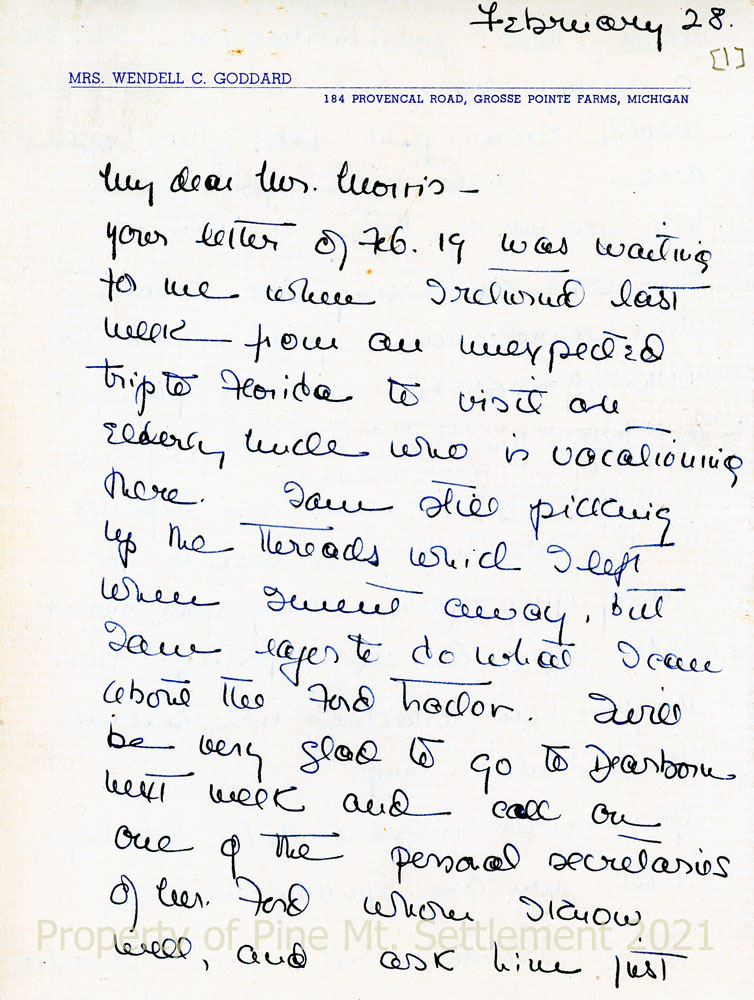 February 28.
[1]
MRS. WENDELL C. GODDARD
184 PROVENCAL ROAD, GROSSE POINTE FARMS, MICHIGAN
My dear Mr. Morris –
your letter of Feb. 19 was waiting
for me when I returned last
week from an unexpected
trip to Florida to visit an
elderly uncle who is vacationing
there. I am still picking
up the threads which I left
when I went away, but
I am eager to do what I can
about the Ford tractor. I will
be very glad to go to Dearborn
next week and call on
one of the personal secretaries
of Mr. Ford whom I know
well, and ask him just
Property of Pine Mt. Settlement 2021